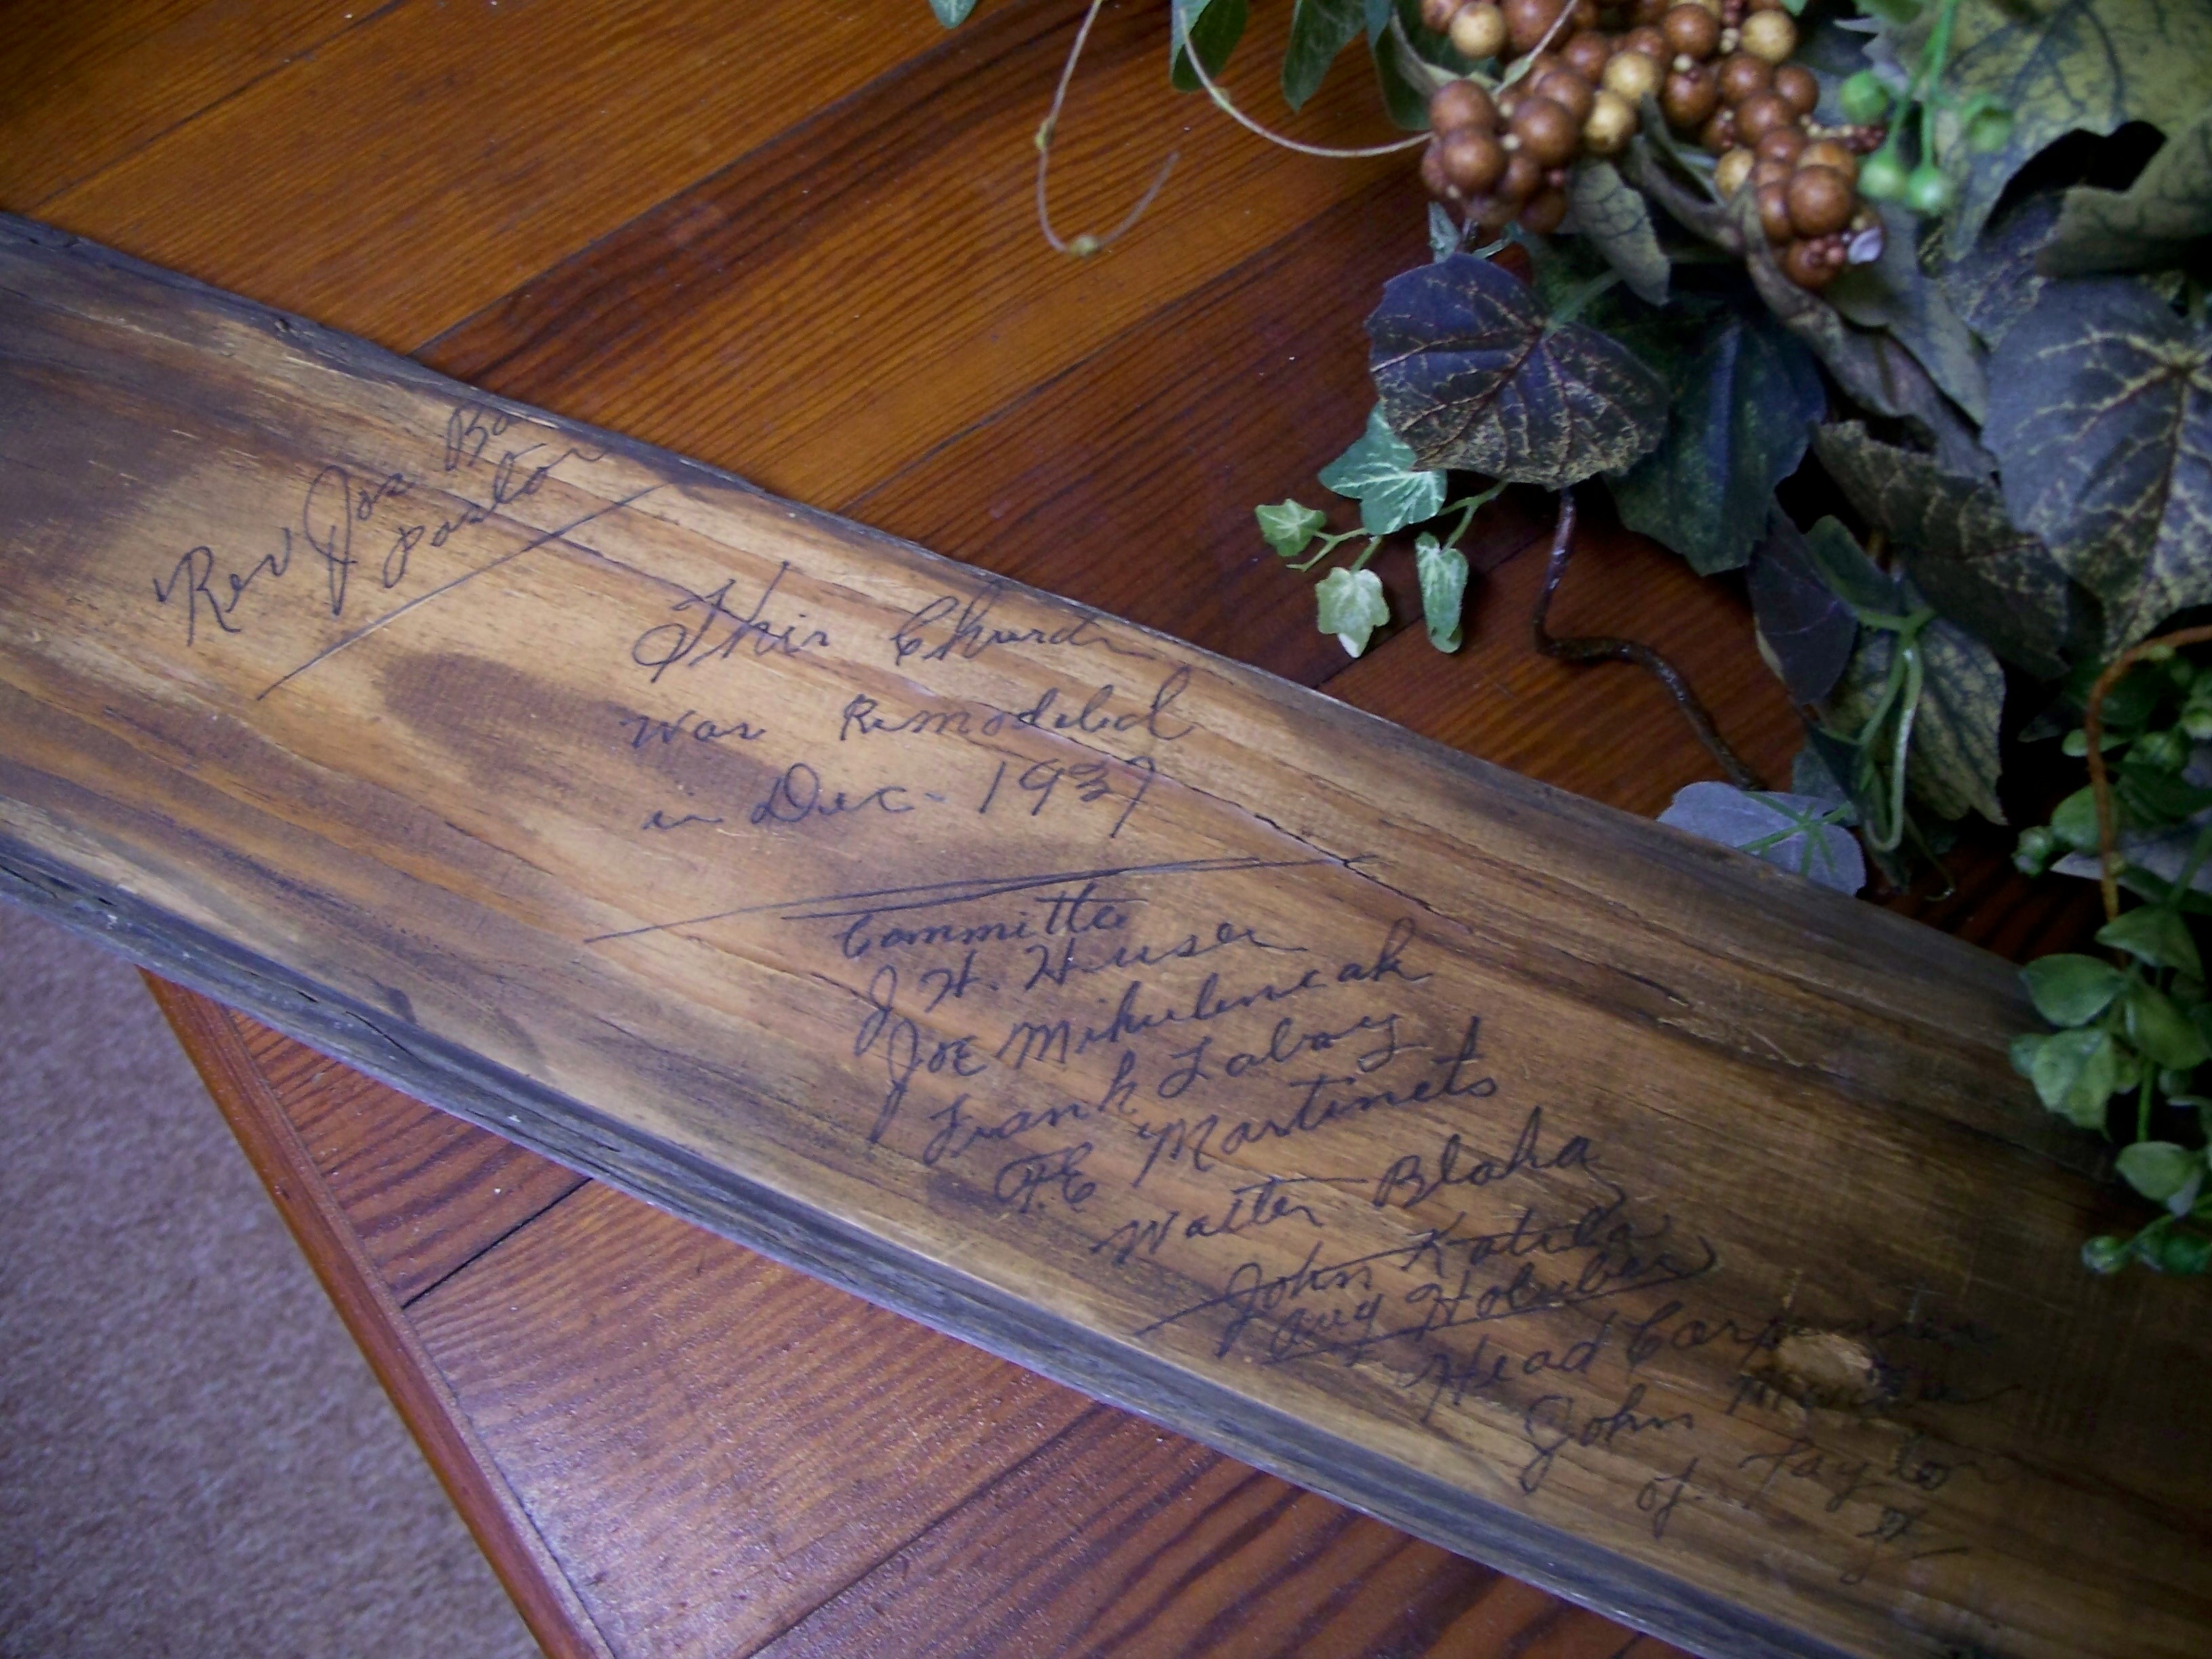 Rev Jos Ba
pastor
This Church
was Remodeled
in Dec - 1937
Committe
J. H. Huser
JOE Mikulencak
Frank Labay
F.E Martinets
Walter Blaha
John Katula
Aug Holuber
Head Carpenter
John
of Taylor